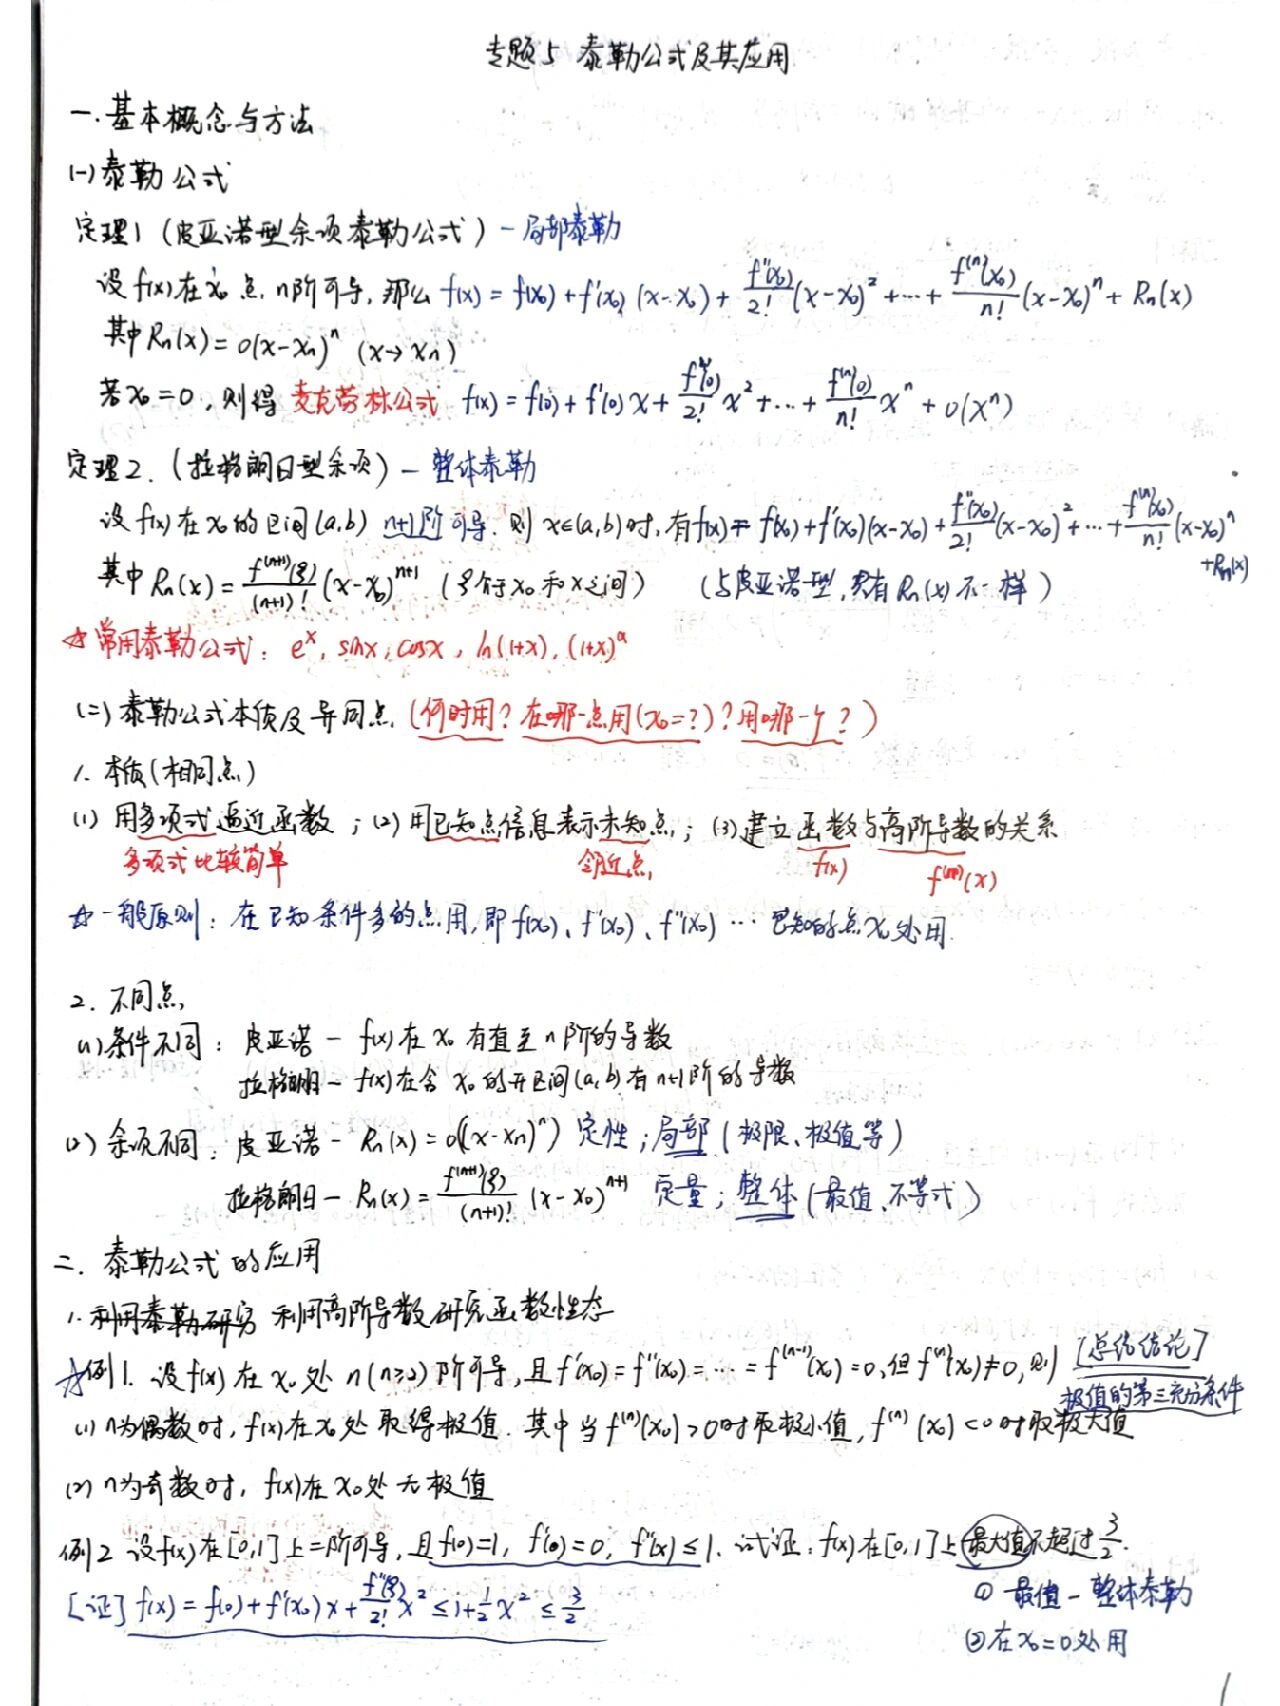 专题5 泰勒公式及其应用
一. 基本概念与方法
(一) 泰勒公式
定理1 (皮亚诺型余项泰勒公式) - 局部泰勒
设 f(x) 在 x₀ 点 n阶可导, 那么 f(x) = f(x₀) + f'(x₀)(x-x₀) + f''(x₀)/2! (x-x₀)² + ⋯ + f⁽ⁿ⁾(x₀)/n! (x-x₀)ⁿ + Rn(x)
其中 Rn(x) = o(x-xn)ⁿ (x→xn)
若 x₀=0, 则得 麦克劳林公式 f(x) = f(0) + f'(0)x + f''(0)/2! x² + ⋯ + f⁽ⁿ⁾(0)/n! xⁿ + o(xⁿ)
定理2. (拉格朗日型余项) - 整体泰勒
设 f(x) 在 x₀ 的区间 (a,b) n+1阶可导. 则 x∈(a,b)时, 有 f(x) = f(x₀) + f'(x₀)(x-x₀) + f''(x₀)/2! (x-x₀)² + ⋯ + f⁽ⁿ⁾(x₀)/n! (x-x₀)ⁿ + Rn(x)
其中 Rn(x) = f⁽ⁿ⁺¹⁾(ξ)/(n+1)! (x-x₀)ⁿ⁺¹ (ξ介于x₀和x之间) (与皮亚诺型, 只有 Rn(x) 不一样)
☆常用泰勒公式: eˣ, sinx, cosx, ln(1+x), (1+x)ᵅ
(二) 泰勒公式本质及异同点 (何时用? 在哪一点用(x₀=?)? 用哪一个?)
1. 本质(相同点)
(1) 用多项式逼近函数; (2) 用已知点信息表示未知点; (3) 建立函数与高阶导数的关系
多项式比较简单 邻近点 f(x) f⁽ⁿ⁾(x)
☆一般原则: 在已知条件多的点用, 即 f(x₀)、f'(x₀)、f''(x₀)⋯ 已知的点x₀处用.
2. 不同点
(1) 条件不同: 皮亚诺 - f(x) 在 x₀ 有直至n阶的导数
拉格朗日 - f(x) 在含 x₀ 的开区间(a,b)有n+1阶的导数
(2) 余项不同: 皮亚诺 - Rn(x) = o((x-xn)ⁿ) 定性; 局部 (极限、极值等)
拉格朗日 - Rn(x) = f⁽ⁿ⁺¹⁾(ξ)/(n+1)! (x-x₀)ⁿ⁺¹ 定量; 整体 (最值、不等式)
二. 泰勒公式的应用
1. 利用泰勒研究 利用高阶导数研究函数性态
☆例1. 设 f(x) 在 x₀ 处 n(n≥2) 阶可导, 且 f'(x₀) = f''(x₀) = ⋯ = f⁽ⁿ⁻¹⁾(x₀) = 0, 但 f⁽ⁿ⁾(x₀) ≠ 0, 则 [总结结论]
极值的第三充分条件
(1) n为偶数时, f(x)在x₀处取得极值. 其中当 f⁽ⁿ⁾(x₀) > 0时取极小值, f⁽ⁿ⁾(x₀) < 0时取极大值
(2) n为奇数时, f(x)在x₀处无极值
例2 设f(x)在[0,1]上二阶可导, 且f(0)=1, f'(0)=0, f''(x)≤1. 试证: f(x)在[0,1]上最大值不超过 3/2.
[证] f(x) = f(0) + f'(x₀)x + f''(ξ)/2! x² ≤ 1 + 1/2 x² ≤ 3/2
① 最值 - 整体泰勒
② 在x₀=0处用
1